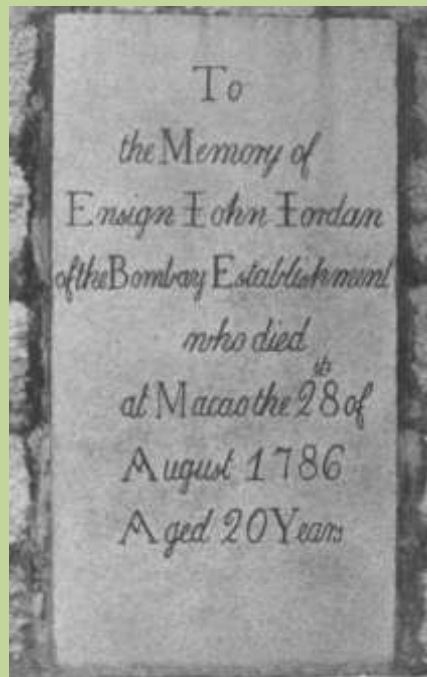 To
the Memory of
Ensign Iohn Iordan
of the Bombay Establishment
who died
at Macao the 28th of
August 1786
Aged 20 Years